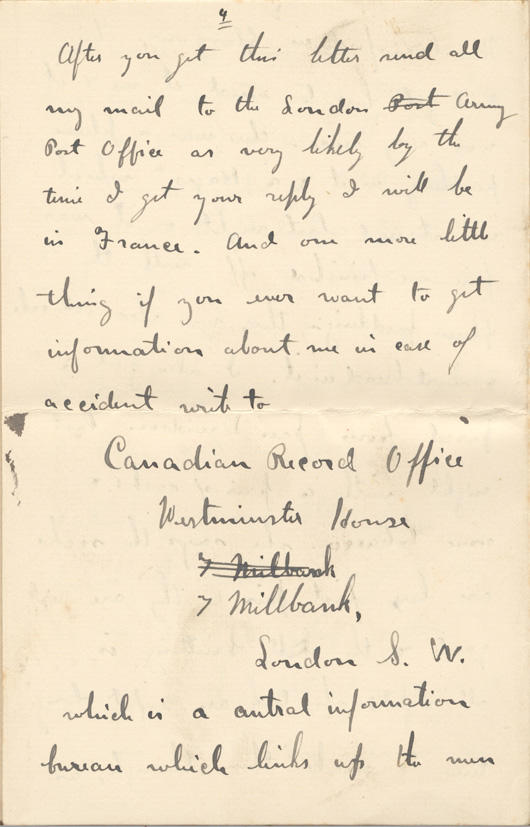 4
After you get this letter send all
my mail to the London Post Army
Post Office as very likely by the
time I get your reply I will be
in France. And one more little
thing if you ever want to get
information about me in case of
accident write to
Canadian Record Office
Westminster House
7 Millbank
7 Millbank,
London S. W.
which is a central information
bureau which links up the men